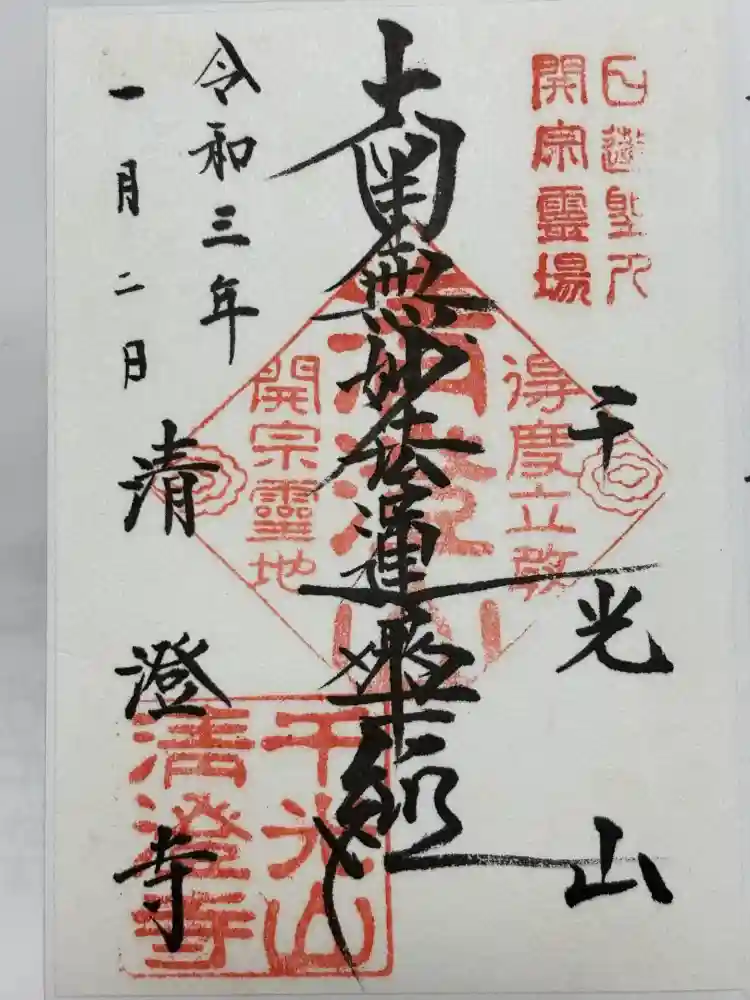 日蓮聖人
開宗霊場
千光山
得度立教
南無妙法蓮華経
清澄山
開宗霊地
令和三年
一月二日
清澄寺
千光山
清澄寺